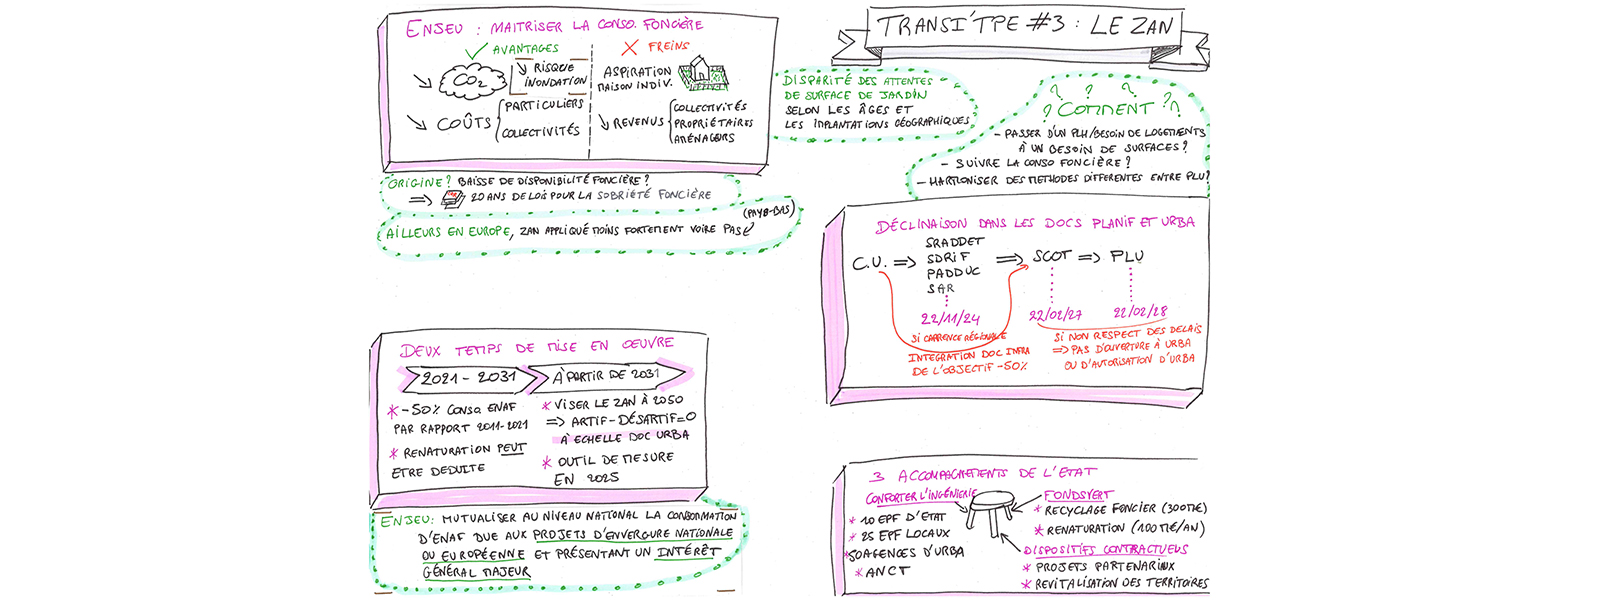 TRANSI'TPE #3 : LE ZAN
ENJEU : MAITRISER LA CONSO. FONCIÈRE
AVANTAGES
CO2
RISQUE
INONDATION
COÛTS
PARTICULIERS
COLLECTIVITÉS
FREINS
ASPIRATION
MAISON INDIV.
REVENUS
COLLECTIVITÉS
PROPRIÉTAIRES
AMÉNAGEURS
ORIGINE ? BAISSE DE DISPONIBILITÉ FONCIÈRE ?
=> 20 ANS DE LOIS POUR LA SOBRIÉTÉ FONCIÈRE
(PAYS-BAS)
AILLEURS EN EUROPE, ZAN APPLIQUÉ MOINS FORTEMENT VOIRE PAS
DISPARITÉ DES ATTENTES
DE SURFACE DE JARDIN
SELON LES ÂGES ET
LES IMPLANTATIONS GÉOGRAPHIQUES
? ? ? ? COMMENT ? ?
- PASSER D'UN PLH/BESOIN DE LOGEMENTS
À UN BESOIN DE SURFACES ?
- SUIVRE LA CONSO FONCIÈRE ?
- HARMONISER DES METHODES DIFFERENTES ENTRE PLU?
DÉCLINAISON DANS LES DOCS PLANIF ET URBA
C.U. => SRADDET
SDRIF
PADDUC
SAR
=> SCOT => PLU
22/11/24
22/02/27
22/02/28
SI CARENCE RÉGIONALE
INTEGRATION DOC INFRA
DE L'OBJECTIF -50%
SI NON RESPECT DES DELAIS
=> PAS D'OUVERTURE À URBA
OU D'AUTORISATION D'URBA
DEUX TEMPS DE MISE EN OEUVRE
2021 - 2031
* -50% CONSO ENAF
PAR RAPPORT 2011-2021
* RENATURATION PEUT
ETRE DEDUITE
À PARTIR DE 2031
* VISER LE ZAN À 2050
=> ARTIF-DÉSARTIF=0
À ECHELLE DOC URBA
* OUTIL DE MESURE
EN 2025
ENJEU: MUTUALISER AU NIVEAU NATIONAL LA CONSOMMATION
D'ENAF DUE AUX PROJETS D'ENVERGURE NATIONALE
OU EUROPÉENNE ET PRÉSENTANT UN INTÉRÊT
GÉNÉRAL MAJEUR
3 ACCOMPAGNEMENTS DE L'ETAT
CONFORTER L'INGÉNIERIE
* 10 EPF D'ETAT
* 25 EPF LOCAUX
* 50 AGENCES D'URBA
* ANCT
FONDS VERT
* RECYCLAGE FONCIER (300M€)
* RENATURATION (100M€/AN)
DISPOSITIFS CONTRACTUELS
* PROJETS PARTENARIAUX
* REVITALISATION DES TERRITOIRES